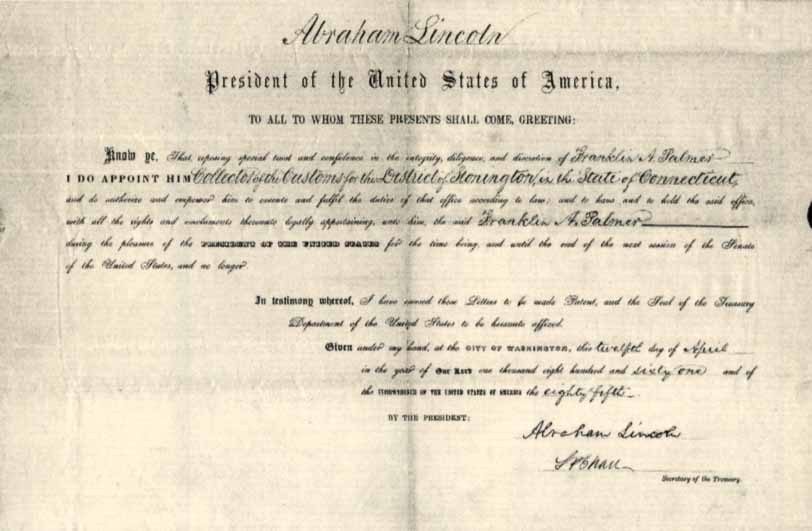 Abraham Lincoln
President of the United States of America,
TO ALL TO WHOM THESE PRESENTS SHALL COME, GREETING:
Know ye, That, reposing special trust and confidence in the integrity, diligence, and discretion of Franklin A. Palmer
I DO APPOINT HIM Collector of the Customs for the District of Stonington, in the State of Connecticut,
and do authorize and empower him to execute and fulfil the duties of that office according to law; and to have and to hold the said office,
with all the rights and emoluments thereunto legally appertaining, unto him, the said Franklin A. Palmer
during the pleasure of the PRESIDENT OF THE UNITED STATES for the time being, and until the end of the next session of the Senate
of the United States, and no longer.
In testimony whereof, I have caused these Letters to be made Patent, and the Seal of the Treasury
Department of the United States to be hereunto affixed.
Given under my hand, at the CITY OF WASHINGTON, this twelfth day of April
in the year of Our Lord one thousand eight hundred and sixty one and of
the INDEPENDENCE OF THE UNITED STATES OF AMERICA the eighty fifth.
BY THE PRESIDENT:
Abraham Lincoln
S P Chase
Secretary of the Treasury.